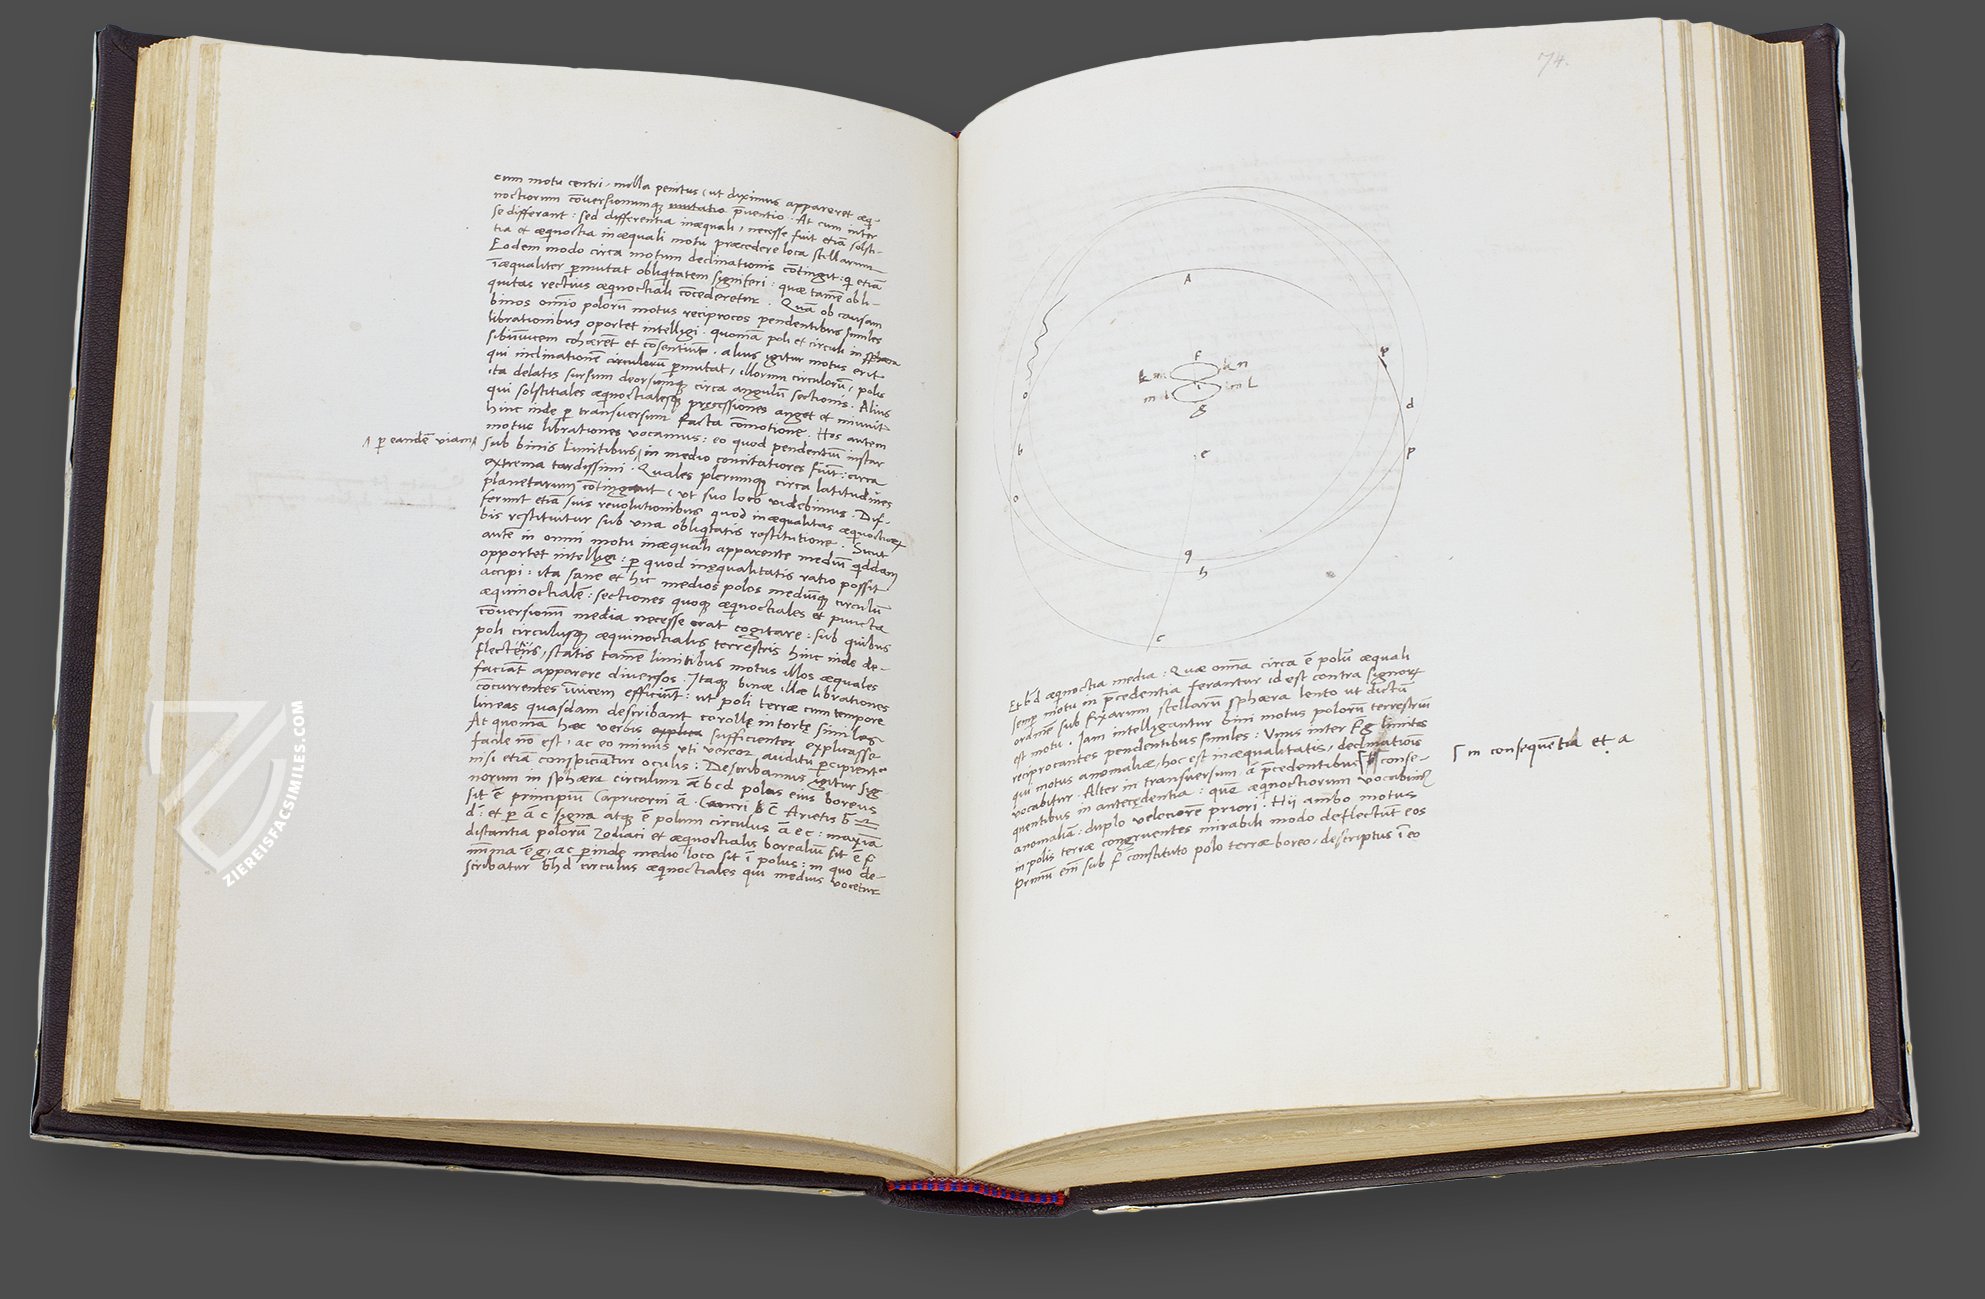 cum motu centri, nulla penitus (ut diximus appareret æq-
noctiorum cōversionumqȝ mutatio p̄ventio. At cum inter
se differant: sed differentia inæquali, necesse fuit etiā solsti-
tia et æqnoctia inæquali motu præcedere loca stellarum
Eodem modo circa motum declinationis cōtingit: q etiā
īæqualiter permutat obliqtatem signiferi: quæ tamē obli-
quitas rectius æqnoctiali cōcederetur. Quā ob causam
binos omnīo polorū motus reciprocos pendentibus similes
librationibus oportet intelligi. quoniā poli et circuli in sphæra
sibiīnvicem cohærēt et cōsentiūt. alius igitur motus erit
qui inclinationē circulorū permutat, illorum circulorū, polis
ita delatis sursum deorsumqȝ circa angulū sectionis. Alius
qui solstitiales æqnoctialesqȝ pręcessiones auget et minuit
hinc inde p transversum facta cōmotione. Hos autem
motus librationes vocamus: eo quod pendentiū instar
⌃ p eandē viam⌃
sub binis limitibus⌃ in medio concitatiores fiūt: circa
extrema tardissimi. Quales plerumqȝ circa latitudines
planetarum cōtingunt (ut suo loco videbimus. Dif-
ferunt etiā suis revolutionibus quod inæqualitas æqnoctiorū
bis restituitur sub una obliqtatis restitutione. Sicut
autē in omni motu inæquali apparente mediū qddam
opportet intelligi: p quod inęqualitatis ratio possit
accipi: ita sane et hic medios polos mediūqȝ circulū
æquinoctialē: sectiones quoqȝ æqnoctiales et puncta
cōversionū media necesse erat cogitare: sub quibus
poli circulusqȝ æquinoctialis terrestris hinc inde de-
flectētis, statis tamē limitibus motus illos æquales
faciāt apparere diversos. Itaqȝ binæ illæ librationes
cōcurrentes īnvicem efficiūt: ut poli terræ cum tempore
lineas quasdam describant corollę intortę similes
At quoniā hæc verbis explica sufficienter explicasse
facile nō est, ac eo minus uti vereor auditu pcipiente
nisi etiā conspiciatur oculis: Describamus igitur sig
norum in sphæra circulum a b c d polus eius boreus
sit ē principiū Capricorni ā. Cancri c̄ Arietis b̄
d̄: et p ā c signa atqȝ ē polum circulus ā e c: maxīa
distantia polorū Zodiaci et æqnoctialis borealiū sit ē f
mīnima ē g, ac perinde medio loco sit ī polus: in quo de-
scribatur b̄hd circulus æqnoctiales qui medius vocetur
74.
A
F
k m
k n
m l
m L
g
o
p
b
d
e
o
p
q
h
c
Et b̄d æqnoctia media: Quæ omīa circa ē polū æquali
semp motu in p̄cedentia ferantur id est contra signorū
ordinē sub fixarum stellarū sphæra lento ut dictū
est motu. Iam intelligantur bini motus polorū terrestriū
reciprocantes pendentibus similes: Unus inter f̄g limites
qui motus anomaliæ, hoc est inæqualitatis, declinationis
vocabitur. Alter in transversum ā p̄cedentibus ⌈ conse-
⌈ in consequētia et a
quentibus in antecędentia: quē æqnoctiorum vocabimȝ
anomaliā: duplo velociorē priori. Hii ambo motus
in polis terræ congruentes mirabili modo deflectūt eos
Primū em̄ sub f̄ constituto polo terræ boreo, descriptus ī eo
ZIEREISFACSIMILES.COM